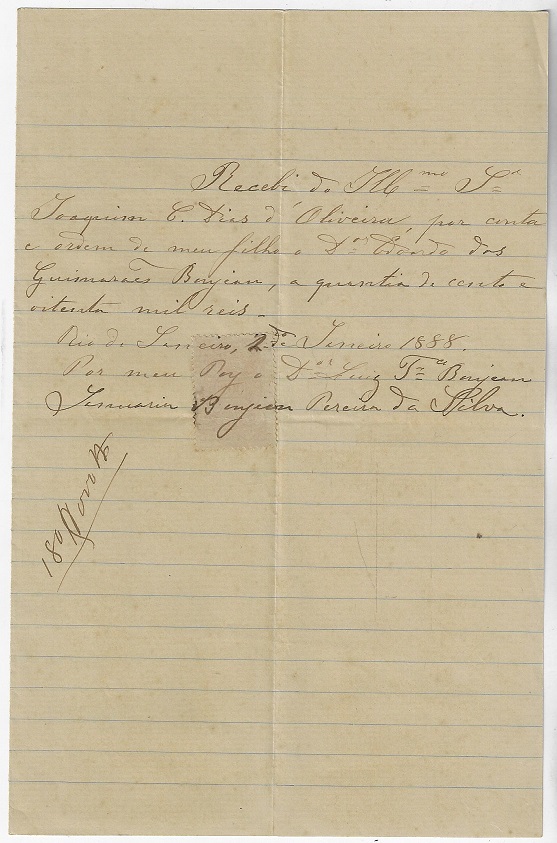 Recebi do Illmo Snr
Joaquim C. Dias d'Oliveira, por conta
e ordem de meu filho o Dor Edoardo dos
Guimaraẽs Bonjean, a quantia de cento e
oitenta mil reis.
Rio de Janeiro, 2 de Janeiro 1888.
Por meu Pay o Dor Luiz Fco Bonjean
Januaria Bonjean Pereira da Silva.
180$000